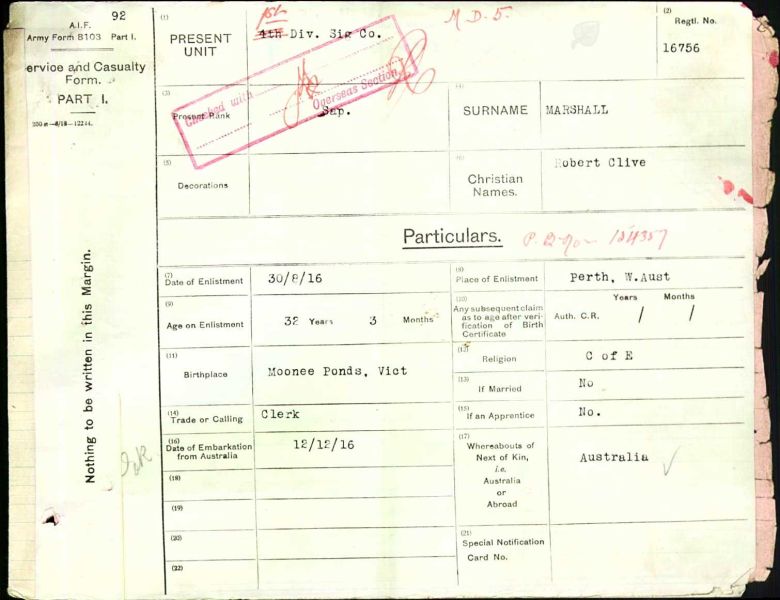 92
A.I.F.
Army Form B103 Part I.
ervice and Casualty
Form.
PART I.
Nothing to be written in this Margin.
(1)
PRESENT
UNIT
1st
4th Div. Sig Co.
M.D.5.
(2)
Regtl. No.
16756
Checked with
Overseas Section
(3)
Present Rank
Sap.
(4)
SURNAME
MARSHALL
(5)
Decorations
(6)
Christian
Names.
Robert Clive
Particulars.
(7)
Date of Enlistment
30/8/16
(8)
Place of Enlistment
Perth, W.Aust
(9)
Age on Enlistment
32 Years 3 Months
(10)
Any subsequent claim
as to age after veri-
fication of Birth
Certificate
Years Months
Auth. C.R. / /
(11)
Birthplace
Moonee Ponds, Vict
(12)
Religion
C of E
(13)
If Married
No
(14)
Trade or Calling
Clerk
(15)
If an Apprentice
No.
(16)
Date of Embarkation
from Australia
12/12/16
(17)
Whereabouts of
Next of Kin,
i.e.
Australia
or
Abroad
Australia
(18)
(19)
(20)
(21)
Special Notification
Card No.
(22)